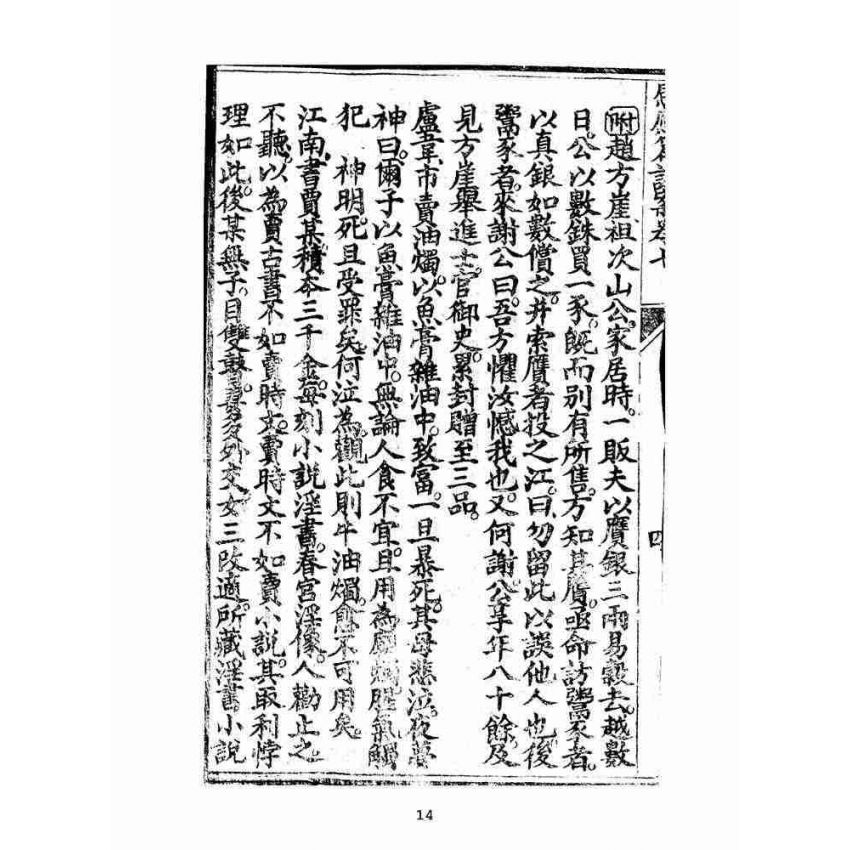 感應篇誥集卷七
四
附趙方崖祖次山公家居時一販夫以贋銀三兩易穀去越數
日公以數銖買一豕旣而別有所售方知其贋亟命訪鬻豕者
以真銀如數償之幷索贋者投之江曰勿留此以誤他人也後
鬻豕者來謝公曰吾方懼汝憾我也又何謝公享年八十餘及
見方崖舉進士官御史累封贈至三品
盧葦市賣油燭以魚膏雜油中致富一旦暴死其母悲泣夜夢
神曰爾子以魚膏雜油中無論人食不宜且用為廟燭腥氣觸
犯 神明死且受罪矣何泣為觀此則牛油燭愈不可用矣
江南書賈某積本三千金每刻小說淫書春宮淫像人勸止之
不聽以為賣古書不如賣時文賣時文不如賣小說其取利悖
理如此後某無子目雙瞽妻多外交女三改適所藏淫書小說
14